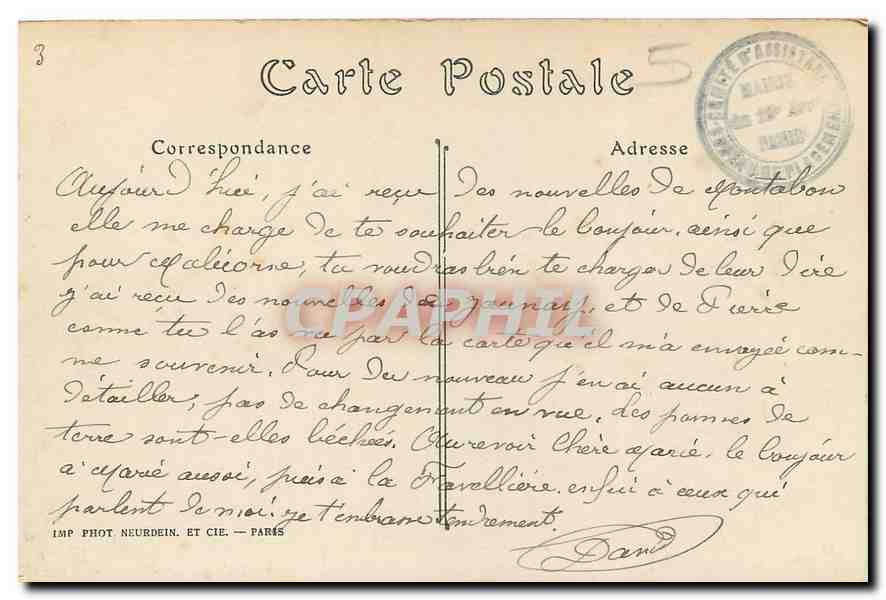 3
5
Carte Postale
Correspondance
Adresse
COMITÉ D'ASSISTANCE
MAIRIE
du Arr
PARIS
Aujourd'hui, j'ai reçu des nouvelles de Montabon
elle me charge de te souhaiter le bonjour, ainsi que
pour Malicorne, tu voudras bién te charger de leur dire
j'ai reçu des nouvelles de Jaunay, et de Pierre
comme tu l'as vu par la carte qu'il m'a envoyée com-
me souvenir. Pour du nouveau j'en ai aucun à
détailler, pas de changement en vue, les pommes de
terre sont-elles béchées. Au revoir Chère Marie, le bonjour
à Marie aussi, puis à la Favellière. enfin à ceux qui
parlent de moi. je t'embrasse tendrement.
CPAPHIL
IMP PHOT NEURDEIN. ET CIE. — PARIS